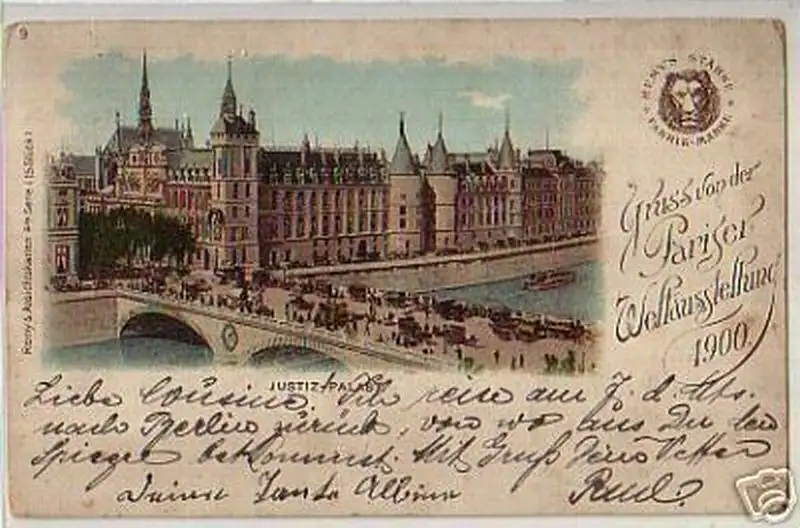 9
REMY'S STÄRKE
FABRIK-MARKE
Gruss von der
Pariser
Weltausstellung
1900
Remy's Ansichtskarten 4te Serie (15 Stück)
JUSTIZ-PALAST
Liebe Cousine. Ich reise am 7. d. Mts.
nach Berlin zurück, von wo aus Du den
Spiegel bekommst. Mit Gruß Dein Vetter
Deiner Tante Albine Paul.